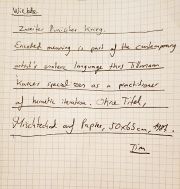 Zweiter Punischer Krieg.
Encoded meaning is part of the contemporary
artist's esoteric language thus Tillmann
Kaiser special ises as a practitioner
of hermetic iteration. Ohne Titel,
Mischtechnik auf Papier, 50x65cm,
Tim